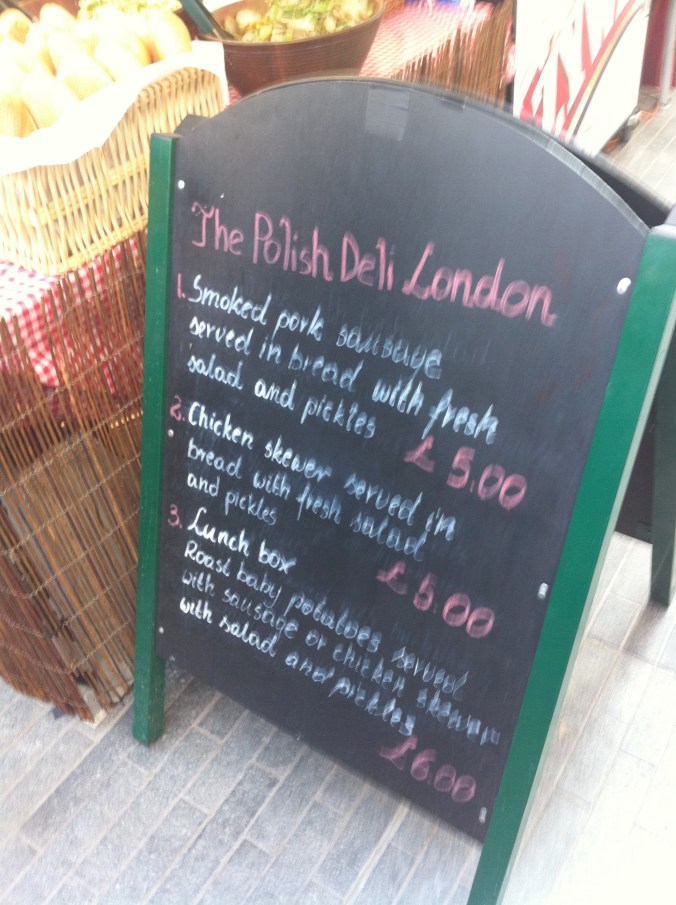 The Polish Deli London
1. Smoked pork sausage
served in bread with fresh
salad and pickles
£ 5.00
2. Chicken skewer served in
bread with fresh salad
and pickles
£ 5.00
3. Lunch box
Roast baby potatoes served
with sausage or chicken
with salad and pickles
£6.00